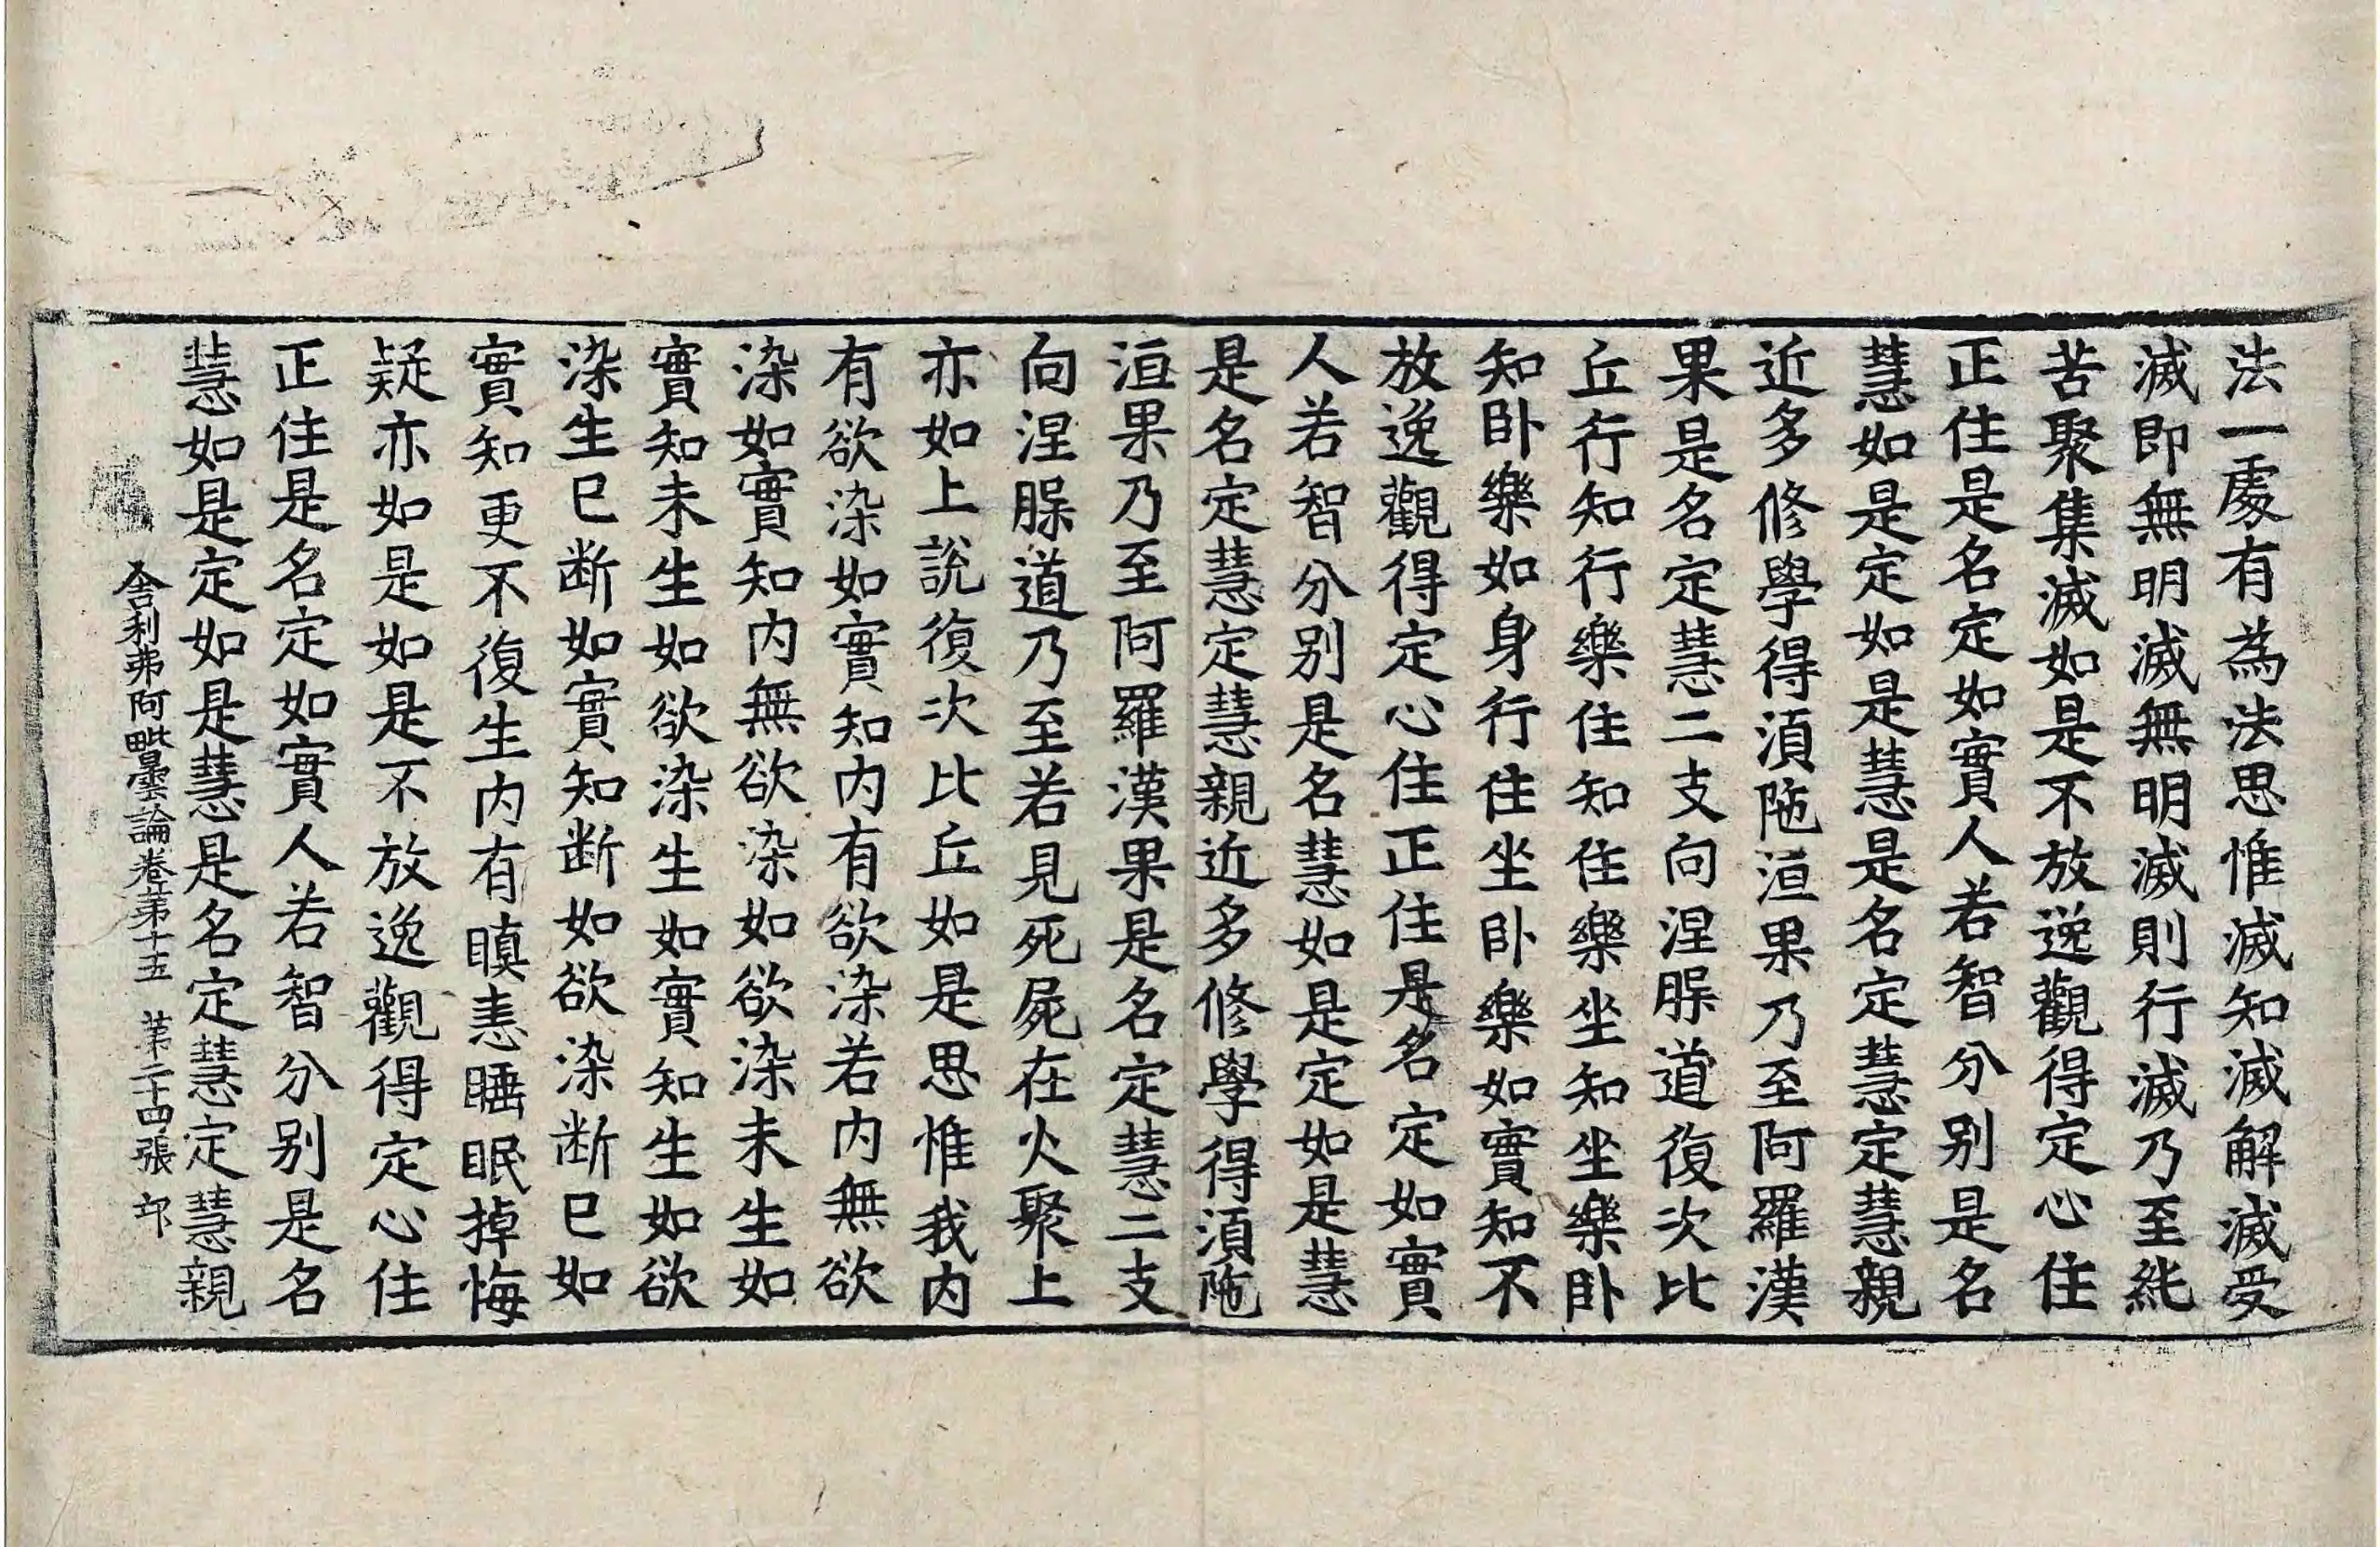 法一處有為法思惟滅知滅解滅受
滅即無明滅無明滅則行滅乃至純
苦聚集滅如是不放逸觀得定心住
正住是名定如實人若智分別是名
慧如是定如是慧是名定慧定慧親
近多修學得湏陁洹果乃至阿羅漢
果是名定慧二支向涅䏶道復次比
丘行知行樂住知住樂坐知坐樂卧
知卧樂如身行住坐卧樂如實知不
放逸觀得定心住正住是名定如實
人若智分別是名慧如是定如是慧
是名定慧定慧親近多修學得湏陁
洹果乃至阿羅漢果是名定慧二支
向涅䏶道乃至若見死屍在火聚上
亦如上說復次比丘如是思惟我内
有欲染如實知内有欲染若内無欲
染如實知内無欲染如欲染未生如
實知未生如欲染生如實知生如欲
染生已断如實知断如欲染断已如
實知更不復生内有瞋恚睡眠掉悔
疑亦如是如是不放逸觀得定心住
正住是名定如實人若智分別是名
慧如是定如是慧是名定慧定慧親
舍利弗阿毗曇論卷第十五 第二十四張